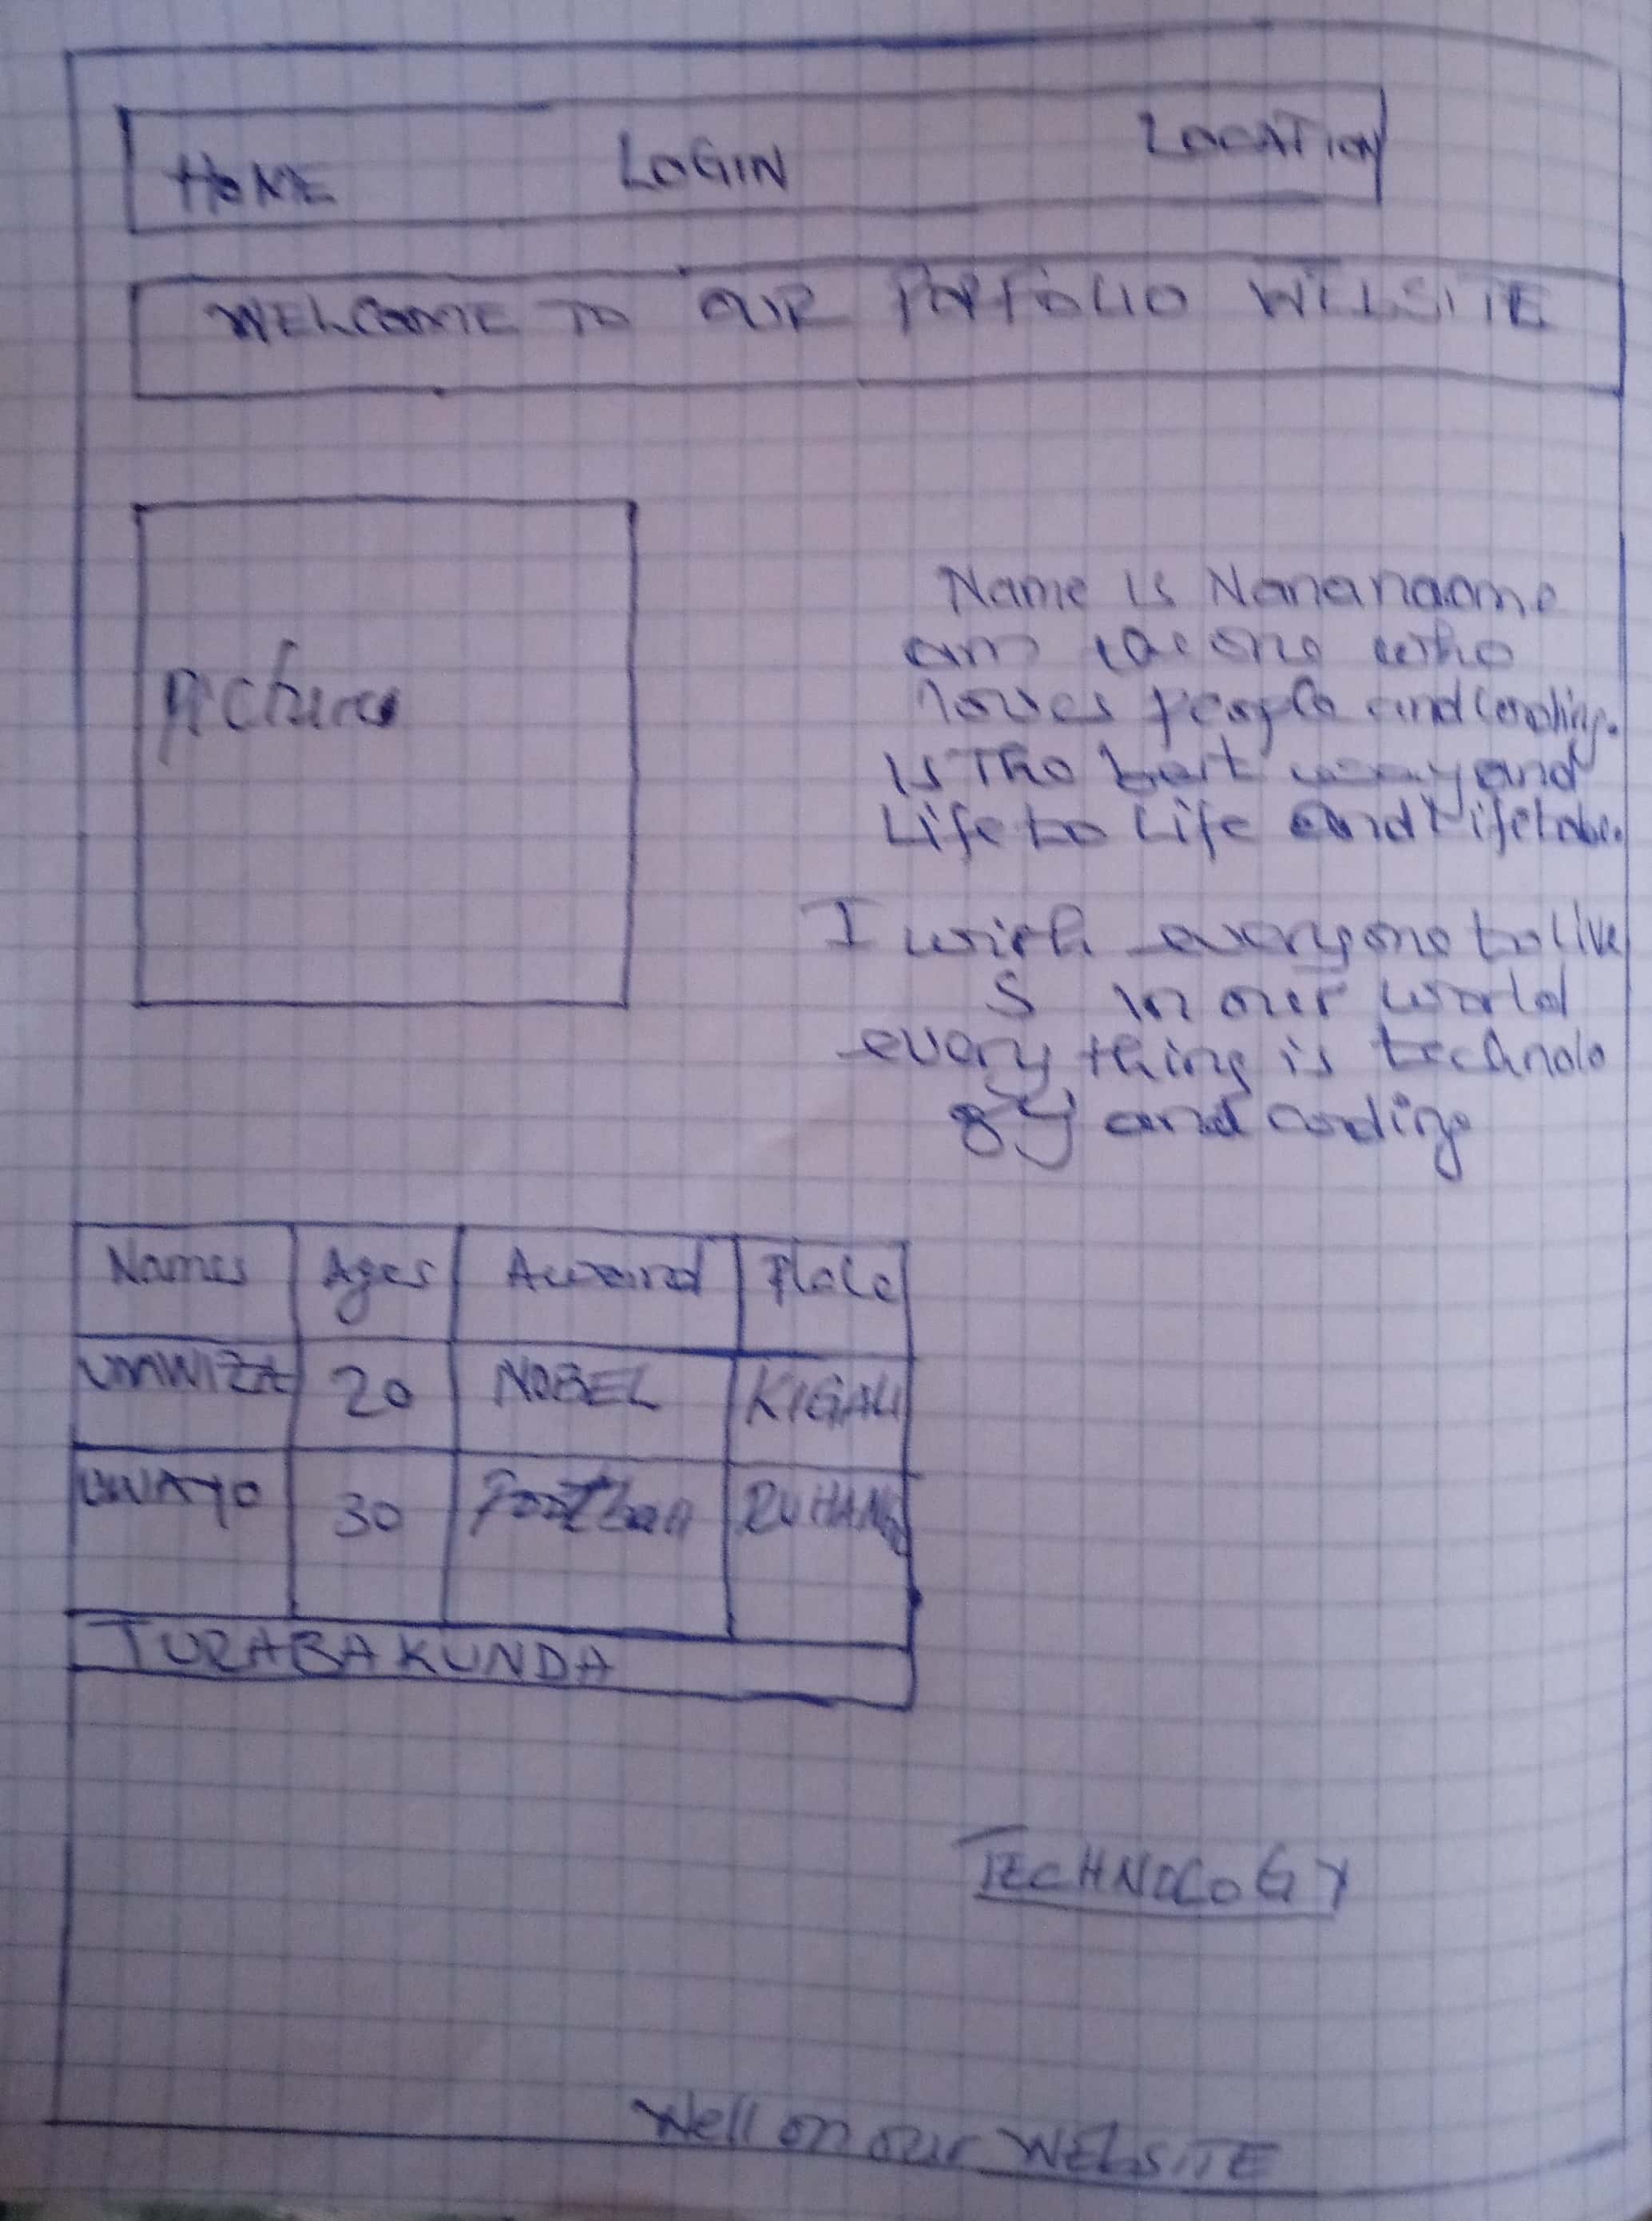 HOME LOGIN LOCATION
WELCOME TO OUR PORFOLIO WEBSITE
pictures
Name is Nananaome
am the one who
loves people and coding.
is The best way and
Life to Life and
I wish everyone to live
S in our world
every thing is technolo
gy and coding
Names Ages Award Place
UMWIZA 20 NOBEL KIGALI
UWAYO 30 Football RUHANG
TURABAKUNDA
TECHNOLOGY
Well on our WEBSITE